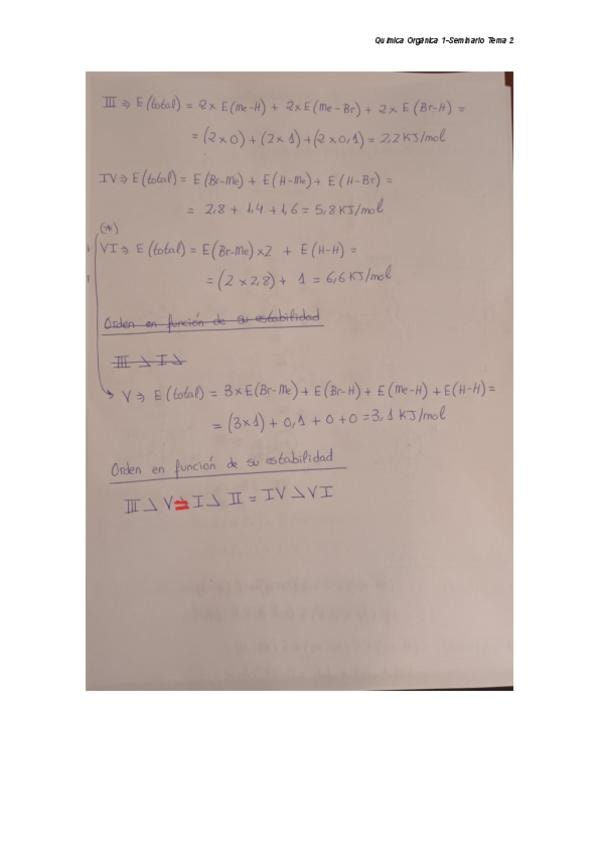 Química Orgánica 1-Seminario Tema 2
III ⇒ E(total) = 2x E(Me-H) + 2xE(Me-Br) + 2x E(Br-H) =
= (2x0) + (2x1) + (2x0,1) = 2,2 KJ/mol
IV ⇒ E(total) = E(Br-Me) + E(H-Me) + E(H-Br) =
= 2,8 + 1,4 + 1,6 = 5,8 KJ/mol
(*)
VI ⇒ E(total) = E(Br-Me)x2 + E(H-H) =
= (2x2,8) + 1 = 6,6 KJ/mol
Orden en función de su estabilidad
III > I >
V ⇒ E(total) = 3xE(Br-Me) + E(Br-H) + E(Me-H) + E(H-H) =
= (3x1) + 0,1 + 0 + 0 = 3,1 KJ/mol
Orden en función de su estabilidad
III > V = I > II = IV > VI